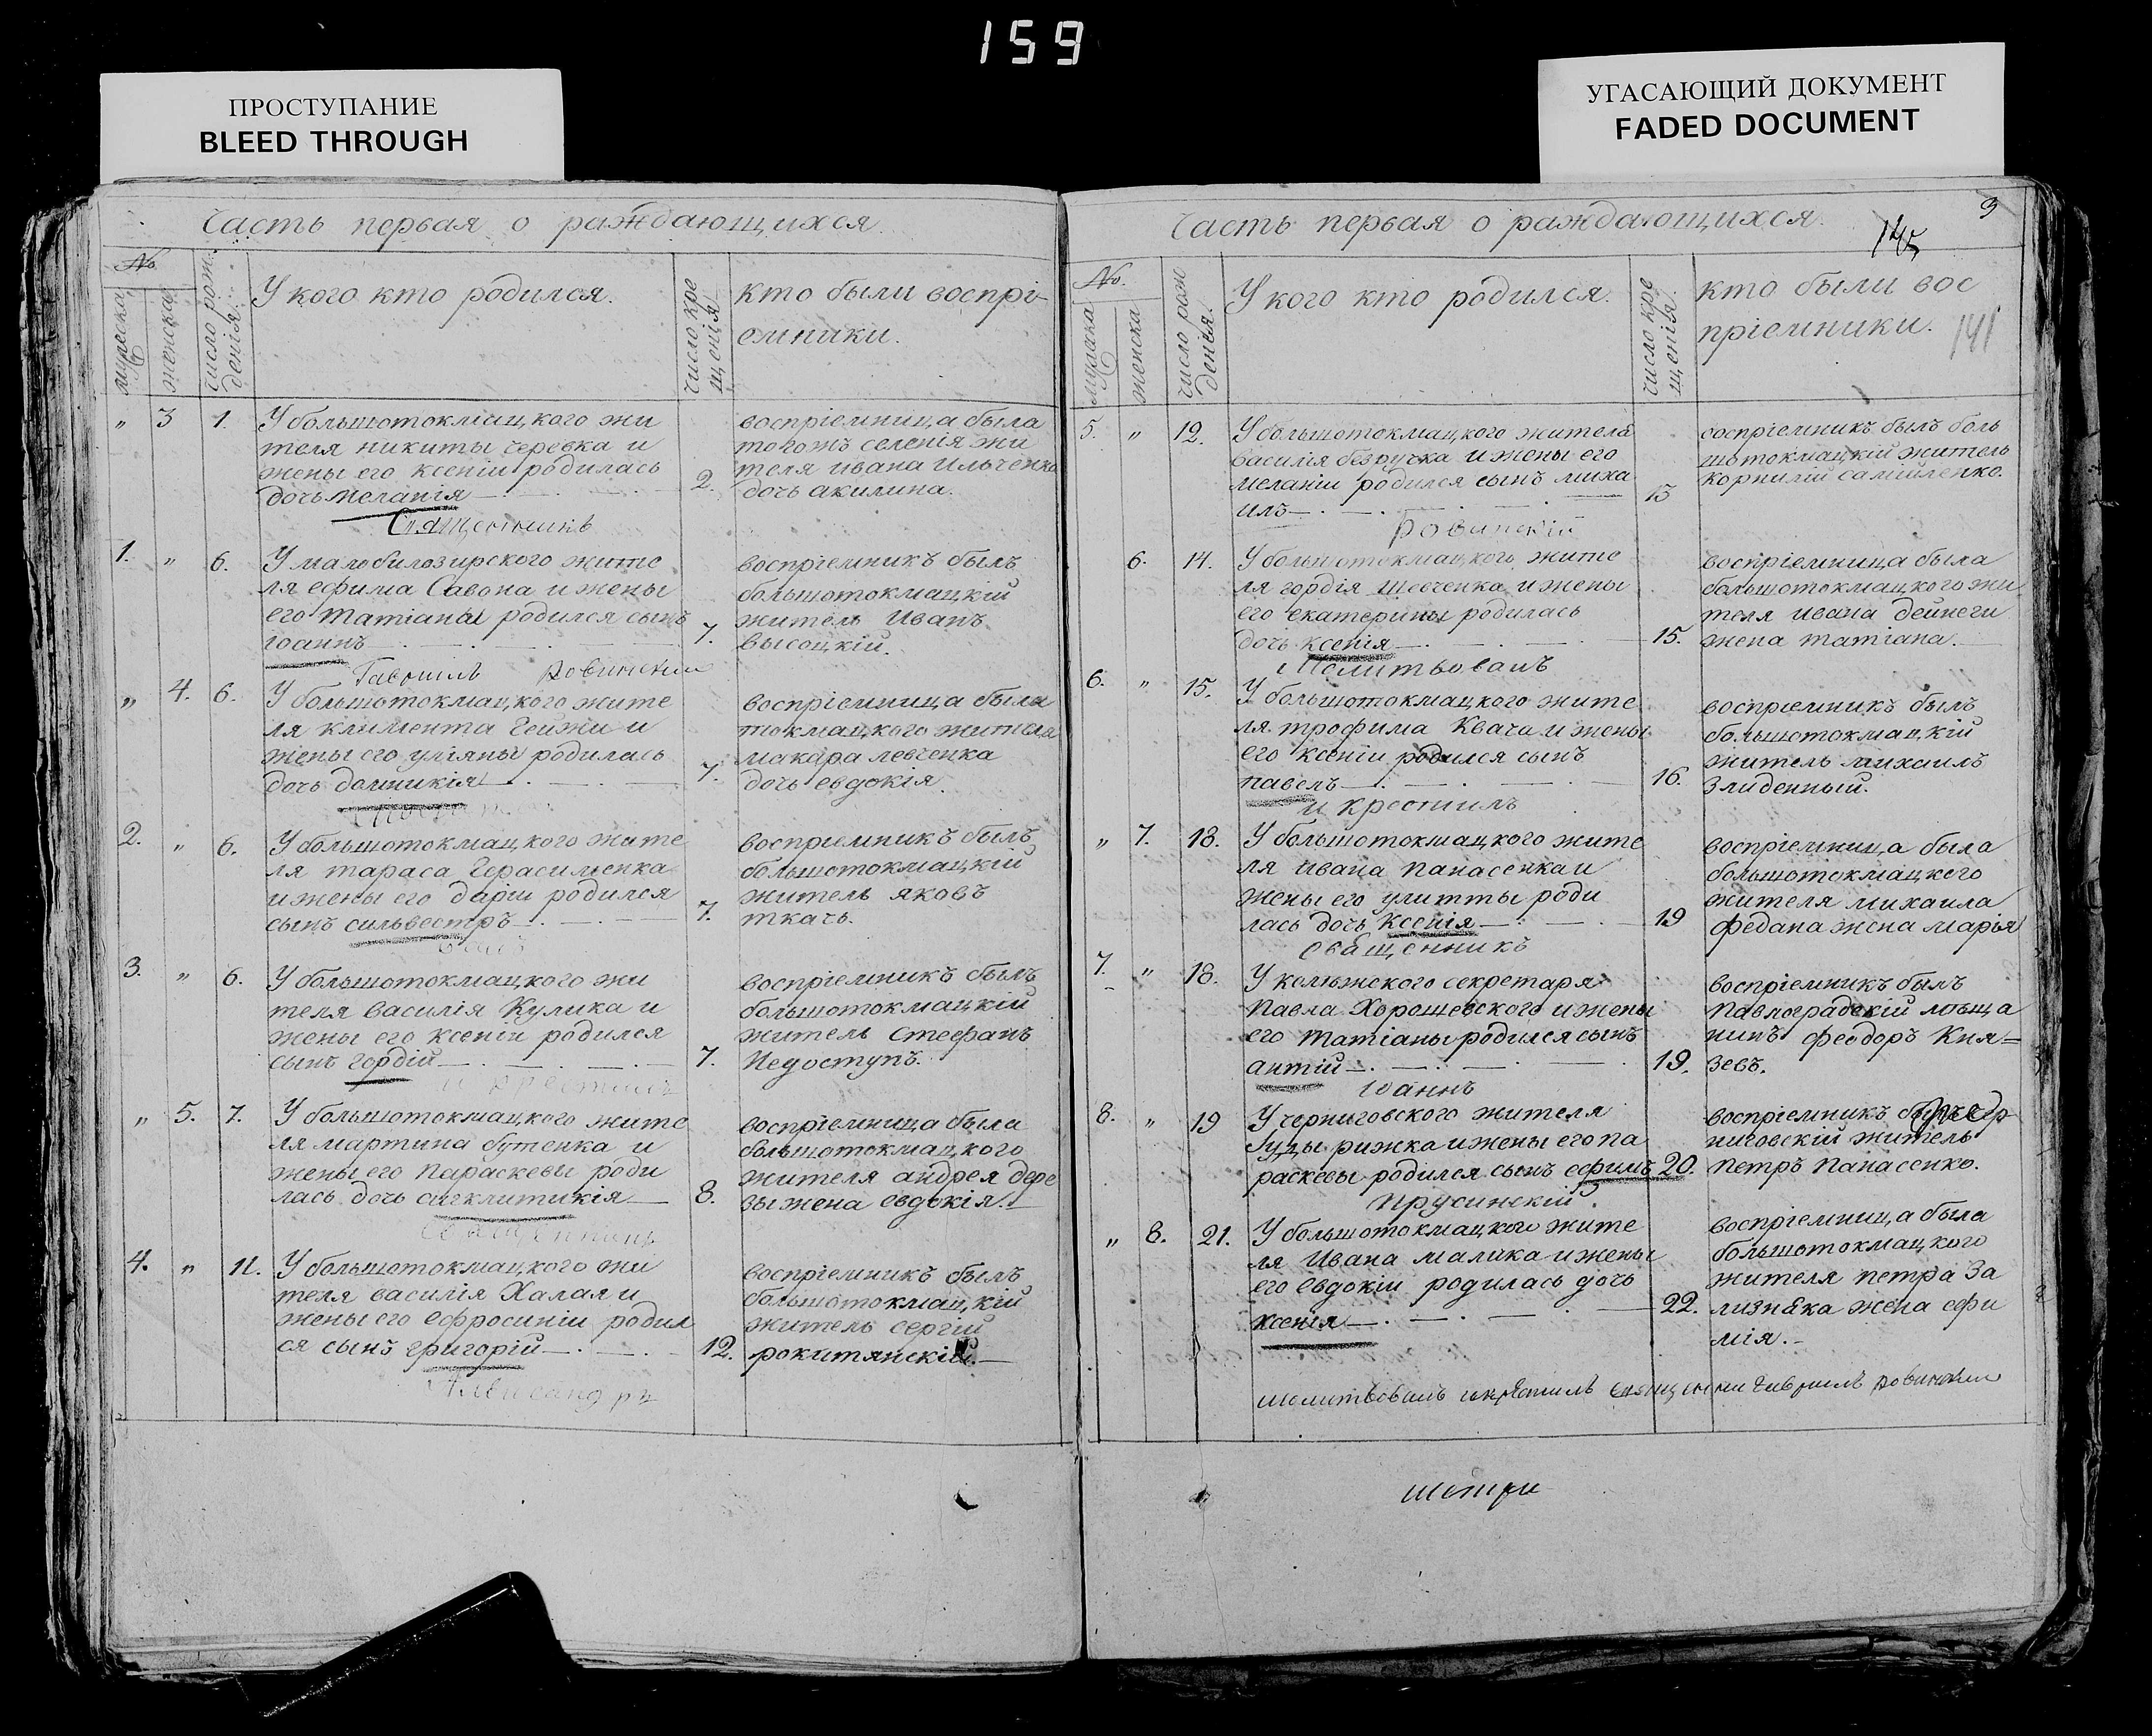 159
ПРОСТУПАНИЕ
BLEED THROUGH
УГАСАЮЩИЙ ДОКУМЕНТ
FADED DOCUMENT
Часть первая о раждающихся
№
мужеска
женска
число рож
денія
У кого кто родился.
число кре
щенія
кто были воспрі-
емники.
„ 3 1.
У большотокмацкого жи
теля никиты черевка и
жены его ксеніи родилась
дочь меланія
2.
воспріемница была
тогожъ селенія жи
теля ивана ильченка
дочь акилина.
Священникъ
1. „ 6.
У малобилозирского жите
ля ефима Савона и жены
его татіаны родился сынъ
іоаннъ
7.
воспріемникъ былъ
большотокмацкій
житель Иванъ
высоцкій.
Гавриилъ Ровинский
„ 4. 6.
У большотокмацкого жите
ля климента
жены его уліяны родилась
дочь домникія
7.
воспріемница была
токмацкого жителя
макара левченка
дочь евдокія.
2. „ 6.
У большотокмацкого жите
ля тараса Герасименка
и жены его даріи родился
сынъ сильвестръ
7.
воспріемникъ былъ
большотокмацкій
житель яковъ
ткачь.
3. „ 6.
У большотокмацкого жи
теля василія Кулика и
жены его ксеніи родился
сынъ гордій
7.
воспріемникъ былъ
большотокмацкій
житель стефанъ
Недоступъ.
и крестилъ
„ 5. 7.
У большотокмацкого жите
ля мартина бутенка и
жены его параскевы роди
лась дочь сигклитикія
8.
воспріемница была
большотокмацкого
жителя андрея дере
зы жена евдокія.
Священникъ
4. „ 11.
У большотокмацкого жи
теля василія Халая и
жены его Ефросиніи родил
ся сынъ григорій
12.
воспріемникъ былъ
большотокмацкій
житель сергій
рокитянскій.
Александръ
Часть первая о раждающихся.
145
9
141
№.
мужска
женска
число рож
денія.
У кого кто родился.
число кре
щенія.
кто были вос
пріемники.
5. „ 12.
У большотокмацкого жителя
василія безручка и жены его
меланіи родился сынъ миха
илъ
13
воспріемникъ былъ боль
шотокмацкій житель
корнилій самійленко.
Ровинскій
6. 14.
У большотокмацкого жите
ля гордія шевченка и жены
его екатерины родилась
дочь ксенія
15.
воспріемница была
большотокмацкого жи
теля ивана дейнеги
жена татіана.
Молитвовалъ
6. „ 15.
У большотокмацкого жите
ля трофима Квача и жены
его ксеніи родился сынъ
павелъ
16.
воспріемникъ былъ
большотокмацкій
житель михаилъ
Злиденный.
и крестилъ
„ 7. 18.
У большотокмацкого жите
ля ивана панасенка и
жены его улитты роди
лась дочь ксенія
19
воспріемница была
большотокмацкого
жителя михаила
федана жена марія
священникъ
7. „ 18.
У колежского секретаря
Павла Хорошевского и жены
его татіаны родился сынъ
антій
19.
воспріемникъ былъ
павлоградскій мѣща
нинъ феодоръ Кня=
зевъ.
Іоаннъ
8. „ 19
У черниговского жителя
Іуды рижка и жены его па
раскевы родился сынъ ефимъ
20.
воспріемникъ былъ чер
ниговскій житель
петръ панасенко.
Прусинскій
„ 8. 21.
У большотокмацкого жите
ля Ивана малика и жены
его евдокіи родилась дочь
ксенія
22.
воспріемница была
большотокмацкого
жителя петра За
лизняка жена ефи
мія.
молитвовалъ и крестилъ священни Гавриилъ Ровинский